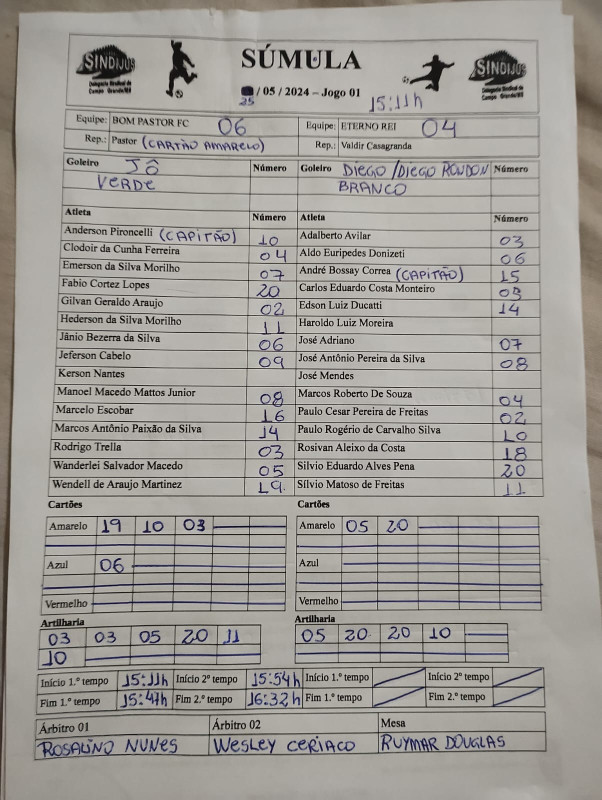 SINDIJUS
Delegacia Sindical de
Campo Grande/MS
SÚMULA
SINDIJUS
Delegacia Sindical de
Campo Grande/MS
25 / 05 / 2024 – Jogo 01 15:11h
Equipe: BOM PASTOR FC 06 Equipe: ETERNO REI 04
Rep.: Pastor (CARTÃO AMARELO) Rep.: Valdir Casagranda
Goleiro JÔ Número Goleiro DIEGO/DIEGO RONDON Número
VERDE BRANCO
Atleta Número Atleta Número
Anderson Pironcelli (CAPITÃO) 10 Adalberto Avilar 03
Clodoir da Cunha Ferreira 04 Aldo Euripedes Donizeti 06
Emerson da Silva Morilho 07 André Bossay Correa (CAPITÃO) 15
Fabio Cortez Lopes 20 Carlos Eduardo Costa Monteiro 05
Gilvan Geraldo Araujo 02 Edson Luiz Ducatti 14
Hederson da Silva Morilho 11 Haroldo Luiz Moreira
Jânio Bezerra da Silva 06 José Adriano 07
Jeferson Cabelo 09 José Antônio Pereira da Silva 08
Kerson Nantes José Mendes
Manoel Macedo Mattos Junior 08 Marcos Roberto De Souza 04
Marcelo Escobar 16 Paulo Cesar Pereira de Freitas 02
Marcos Antônio Paixão da Silva 14 Paulo Rogério de Carvalho Silva 10
Rodrigo Trella 03 Rosivan Aleixo da Costa 18
Wanderlei Salvador Macedo 05 Silvio Eduardo Alves Pena 20
Wendell de Araujo Martinez 19 Sílvio Matoso de Freitas 11
Cartões Cartões
Amarelo 19 10 03 Amarelo 05 20
Azul 06 Azul
Vermelho Vermelho
Artilharia Artilharia
03 03 05 20 11 05 20 20 10
10
Início 1.º tempo 15:11h Início 2º tempo 15:54h Início 1.º tempo Início 2º tempo
Fim 1.º tempo 15:47h Fim 2.º tempo 16:32h Fim 1.º tempo Fim 2.º tempo
Árbitro 01 Árbitro 02 Mesa
ROSALINO NUNES WESLEY CERIACO RUYMAR DOUGLAS